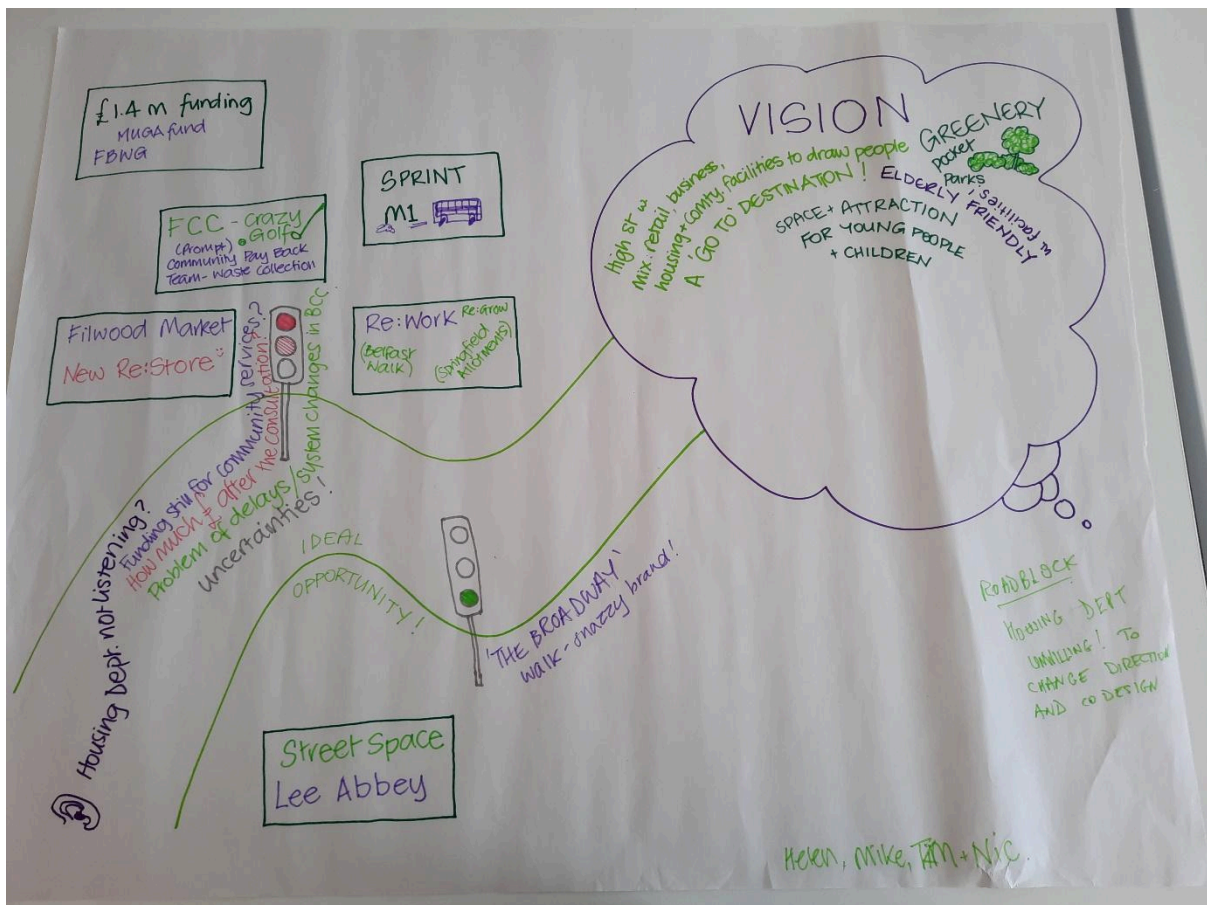 £1.4 m funding
MUGA fund
FBWG
FCC - Crazy
Golf
(Prompt)
Community Pay Back
Team - Waste Collection
SPRINT
M1
Filwood Market
New Re:Store
Re:Work
Re:Grow
(Belfast
Walk)
(Springfield
Allotments)
VISION
High St w
mix: retail, business,
housing + comty, facilities to draw people
A 'GO TO' DESTINATION!
GREENERY
pocket
parks
ELDERLY FRIENDLY
w facilities
SPACE + ATTRACTION
FOR YOUNG PEOPLE
+ CHILDREN
Housing Dept. not listening?
Funding still for community services?
How much £ after the consultation?
Problem of delays/system changes in BCC.
uncertainties!
IDEAL
OPPORTUNITY!
'THE BROADWAY'
walk - snazzy brand!
Street Space
Lee Abbey
ROADBLOCK
DEPT
UNWILLING! TO
CHANGE DIRECTION
AND CO DESIGN
Helen, Mike, + Nic.